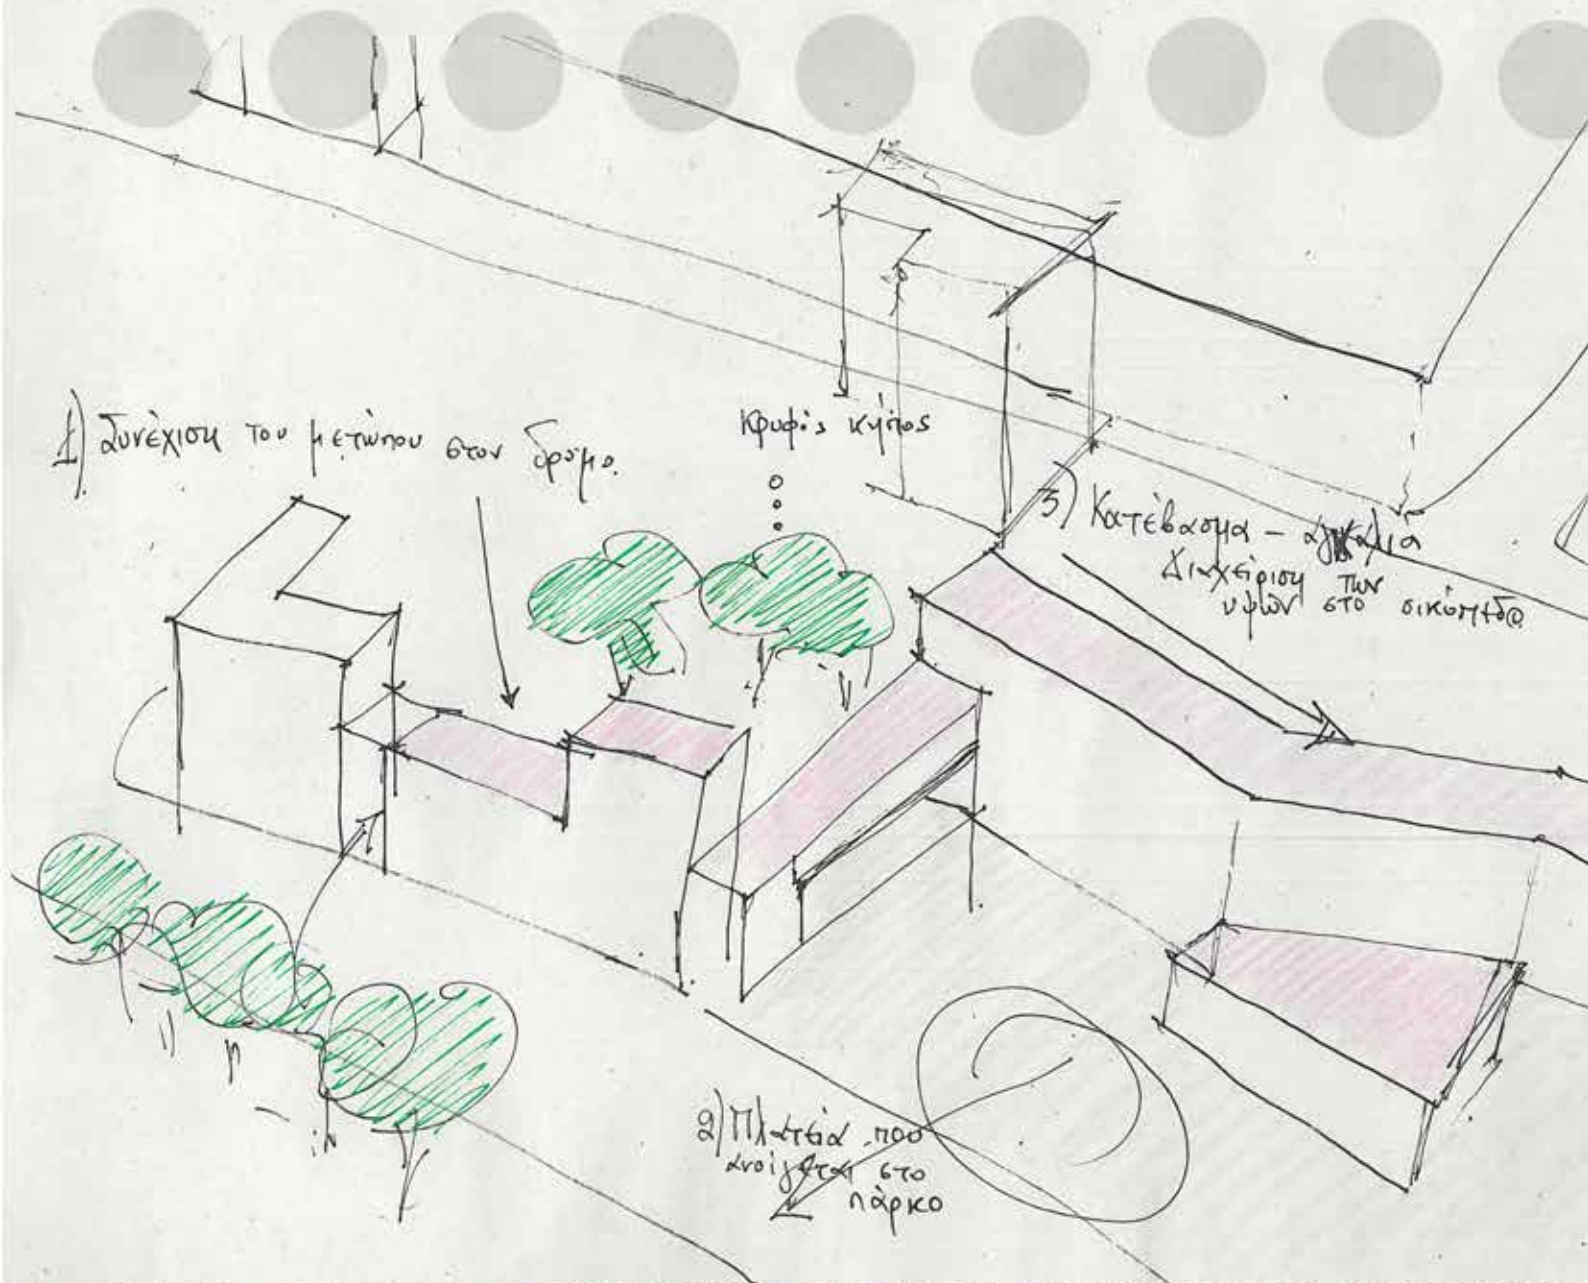 1) Συνέχιση του μετώπου στον δρόμο.
κρυφός κήπος
3) Κατέβασμα – αγκαλιά
Διαχείριση των
υψών στο
2) Πλατεία που
ανοίγεται στο
πάρκο